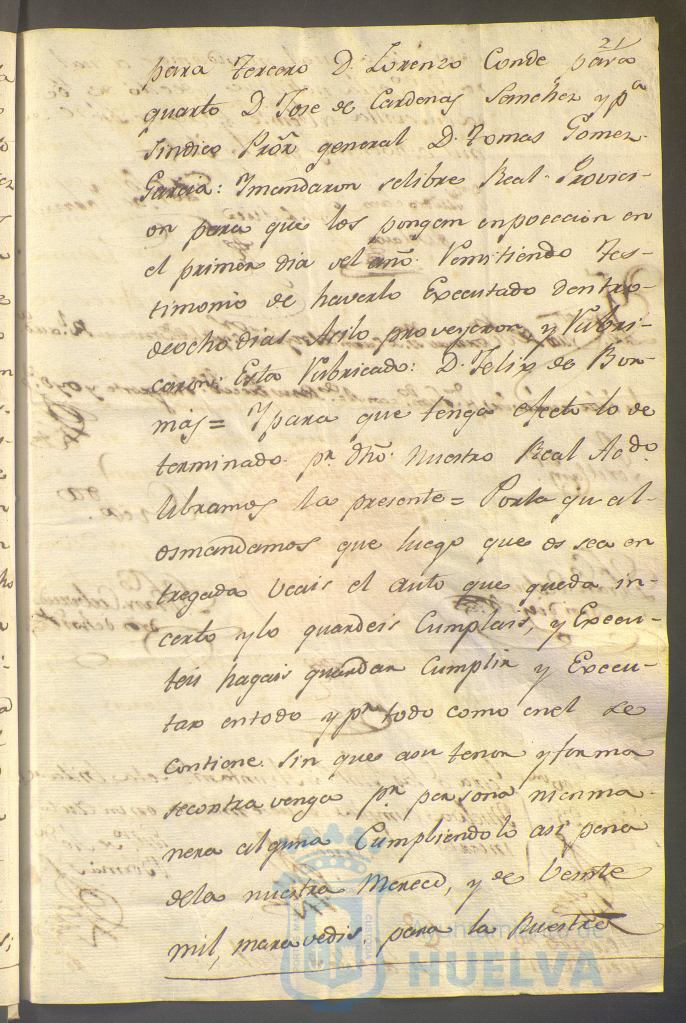 21
para tercero D. Lorenzo Conde para
quarto D. Jose de Cardenas Sanchez y pa
Sindico Pror general D. Tomas Gomez
Garcia: Imandaron selibre Real Provici-
on para que los pongan enpoceción en
el primer dia del año. Remitiendo Tes-
timonio de haverlo Executado dentro
deocho dias Asilo proveyeron y Rubri-
caron: Esta Rubricado: D. Felix de Bor-
mas = Y para que tenga efecto lo de
terminado pr dho. nuestro Real Acdo.
libramos la presente = Porla qu al-
osmandamos que luego que os sea en
tregada veais el auto que queda in-
certo ylo guardeis Cumplais, y Execu-
teis hagais guardar Cumplir y Execu-
tar entodo y pr todo como enel se
contiene sin que asu tenor yforma
secontravenga pr persona nienma-
nera alguna Cumpliendolo asi pena
dela nuestra Merced, y de veinte
mil, maravedis para la Nuestra
Ayuntamiento de
HUELVA